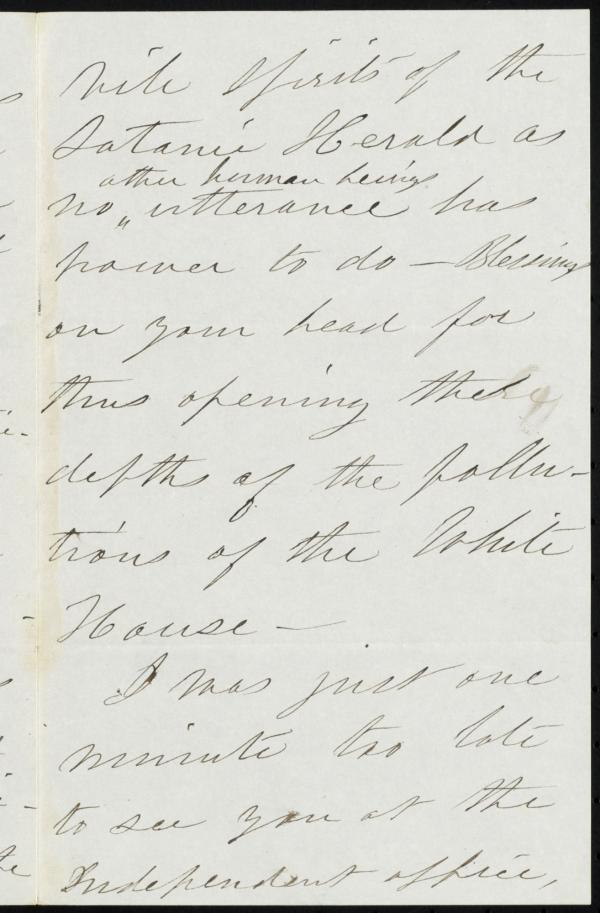 vile spirits of the
Satanic Herald as
other human beings
no „ utterance has
power to do — Blessings
on your head for
thus opening these
depths of the pollu-
tions of the White
House —
I was just one
minute too late
to see you at the
Independent office,